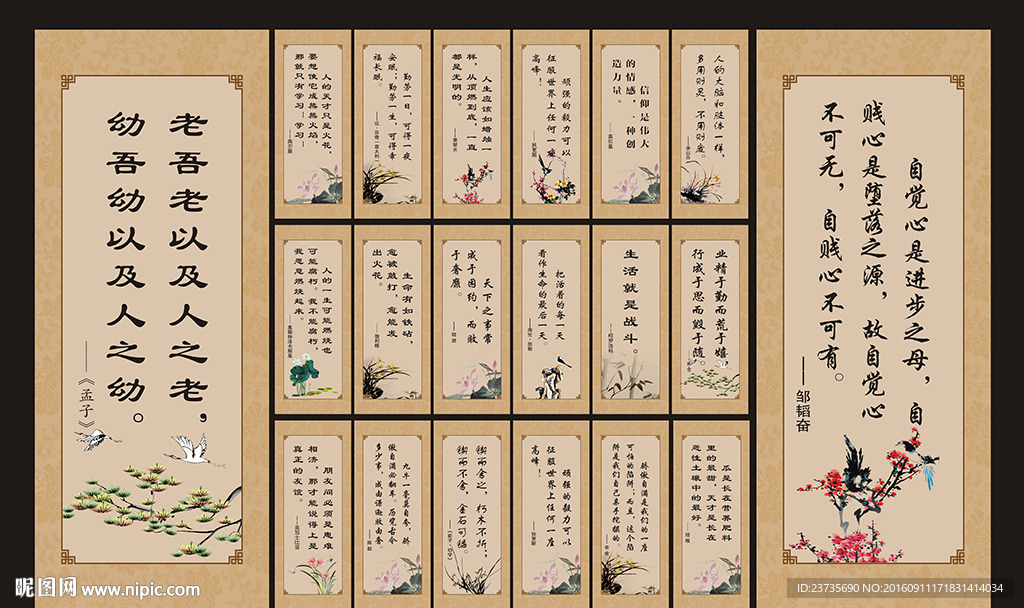 老吾老以及人之老，
幼吾幼以及人之幼。
——《孟子》
人的天才只是火花，
要想使它成熊熊火焰，
那就只有学习！学习！
——高尔基
勤劳一日，可得一夜
安眠；勤劳一生，可得幸
福长眠。
人生应该如蜡烛一
样，从顶燃到底，一直
都是光明的。
——萧楚女
顽强的毅力可以
征服世界上任何一座
高峰！
——狄更斯
信仰是伟大
的情感，一种创
造力量。
——高尔基
人的大脑和肢体一样，
多用则灵，不用则废。
——茅以升
人的一生可能燃烧也
可能腐朽。我不能腐朽，
我愿意燃烧起来。
——奥斯特洛夫斯基
生命有如铁砧，
愈被敲打，愈能发
出火花。
——伽利略
天下之事常
成于困约，而败
于奢靡。
——陆游
把活着的每一天
看作生命的最后一天。
——海伦·凯勒
生活就是战斗。
——柯罗连科
业精于勤而荒于嬉，
行成于思而毁于随。
——韩愈
朋友间必须是患难
相济，那才能说得上是
真正的友谊。
——莎士比亚
九牛一毫莫自夸，骄
傲自满必翻车。历览古今
多少事，成由谦逊败由奢。
——陈毅
锲而舍之，朽木不折；
锲而不舍，金石可镂。
——《荀子·劝学》
顽强的毅力可以
征服世界上任何一座
高峰！
——狄更斯
骄傲自满是我们的一座
可怕的陷阱；而且，这个陷
阱是我们自己亲手挖掘的。
——老舍
瓜是长在营养肥料
里的最甜，天才是长在
恶性土壤中的最好。
——培根
自觉心是进步之母，自
贱心是堕落之源，故自觉心
不可无，自贱心不可有。
——邹韬奋
昵图网 www.nipic.com
ID:23735690 NO:20160911171831414034